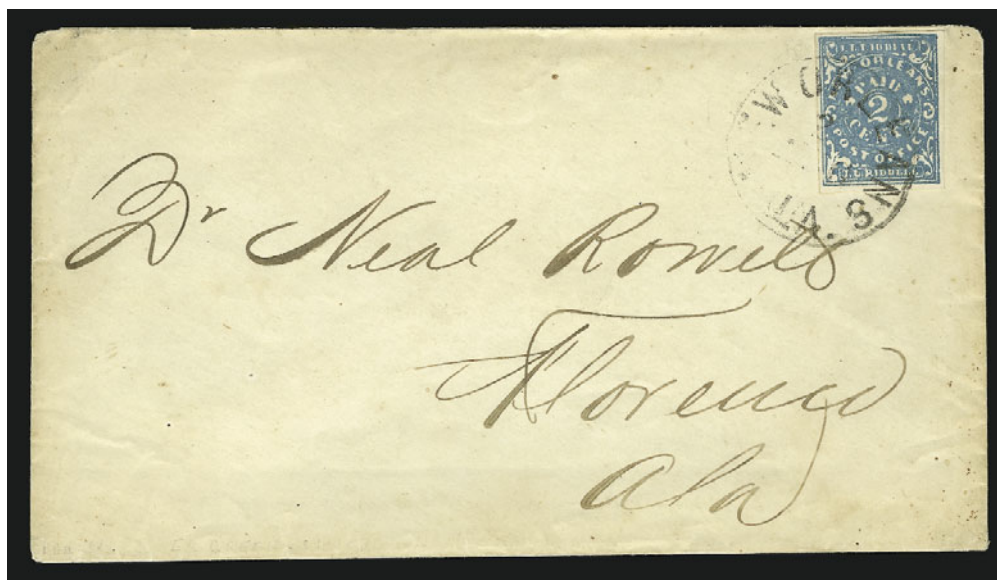 J.L. RIDDELL
ORLEANS
PAID
2
CENTS
POST OFFICE
J.L. RIDDELL
NEW ORLEANS
LA.
Dr Neal Rowell
Florence
Ala